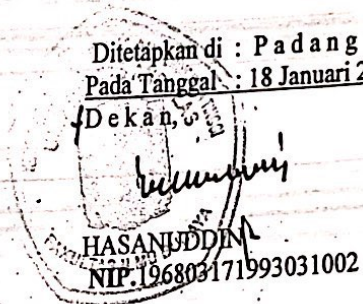 Ditetapkan di : P a d a n g
Pada Tanggal : 18 Januari 2
D e k a n,
HASANUDDIN
NIP.196803171993031002